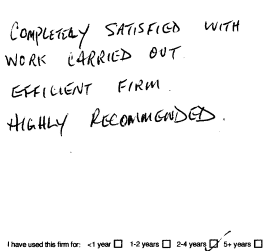 COMPLETELY SATISFIED WITH
WORK CARRIED OUT.
EFFICIENT FIRM.
HIGHLY RECOMMENDED.
I have used this firm for: <1 year ☐ 1-2 years ☐ 2-4 years ☑ 5+ years ☐